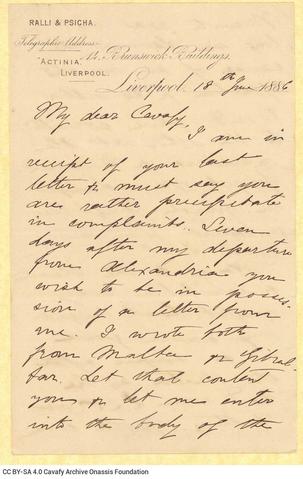 RALLI & PSICHA.
Telegraphic Address:
"ACTINIA"
LIVERPOOL.
14, Brunswick Buildings,
Liverpool, 18th June 1886
My dear Cavafy,
I am in
receipt of your last
letter & must say you
are rather precipitate
in complaints. Seven
days after my departure
from Alexandria you
wish to be in posses-
sion of a letter from
me. I wrote both
from Malta & Gibral-
tar. Let that content
you & let me enter
into the body of the
CC BY-SA 4.0 Cavafy Archive Onassis Foundation